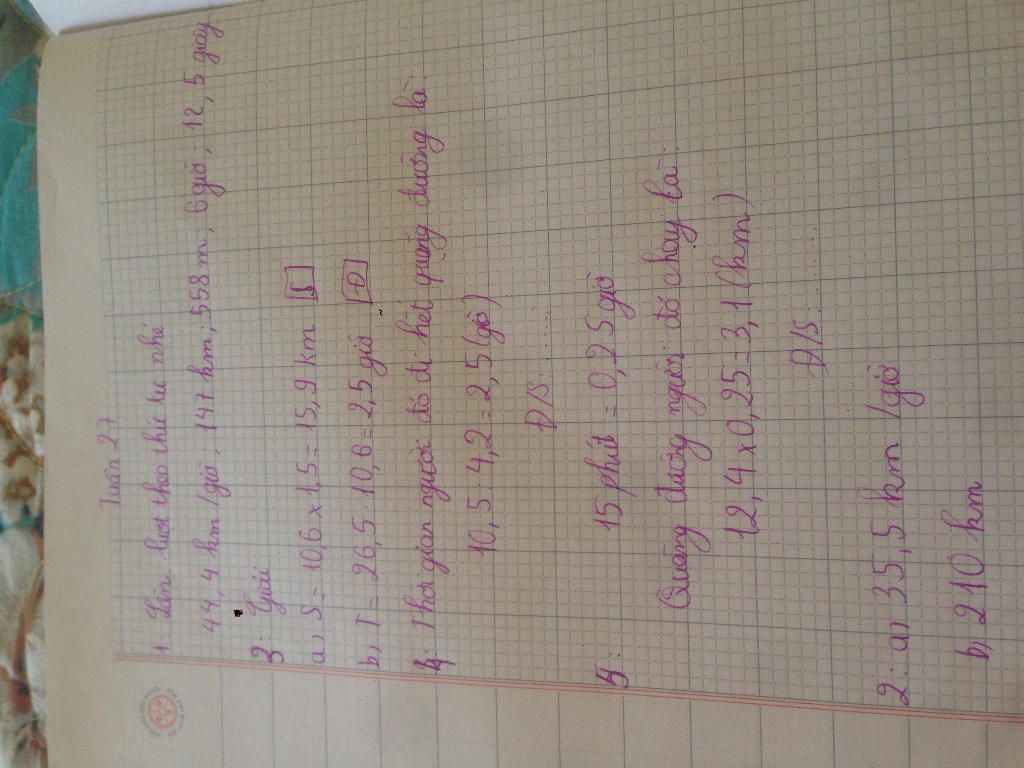 Tuần 27
1. Lần lượt theo thứ tự nhé
44,4 km/giờ; 147 km; 558 m; 6 giờ; 12,5 giây
3. Giải
a, S = 10,6 x 1,5 = 15,9 km S
b, T = 26,5 : 10,6 = 2,5 giờ Đ
4. Thời gian người đó đi hết quãng đường là:
10,5 : 4,2 = 2,5 (giờ)
Đ/S: .....
5. 15 phút = 0,25 giờ
Quãng đường người đó chạy là:
12,4 x 0,25 = 3,1 (km)
Đ/S: .....
2. a, 35,5 km/giờ
b, 210 km